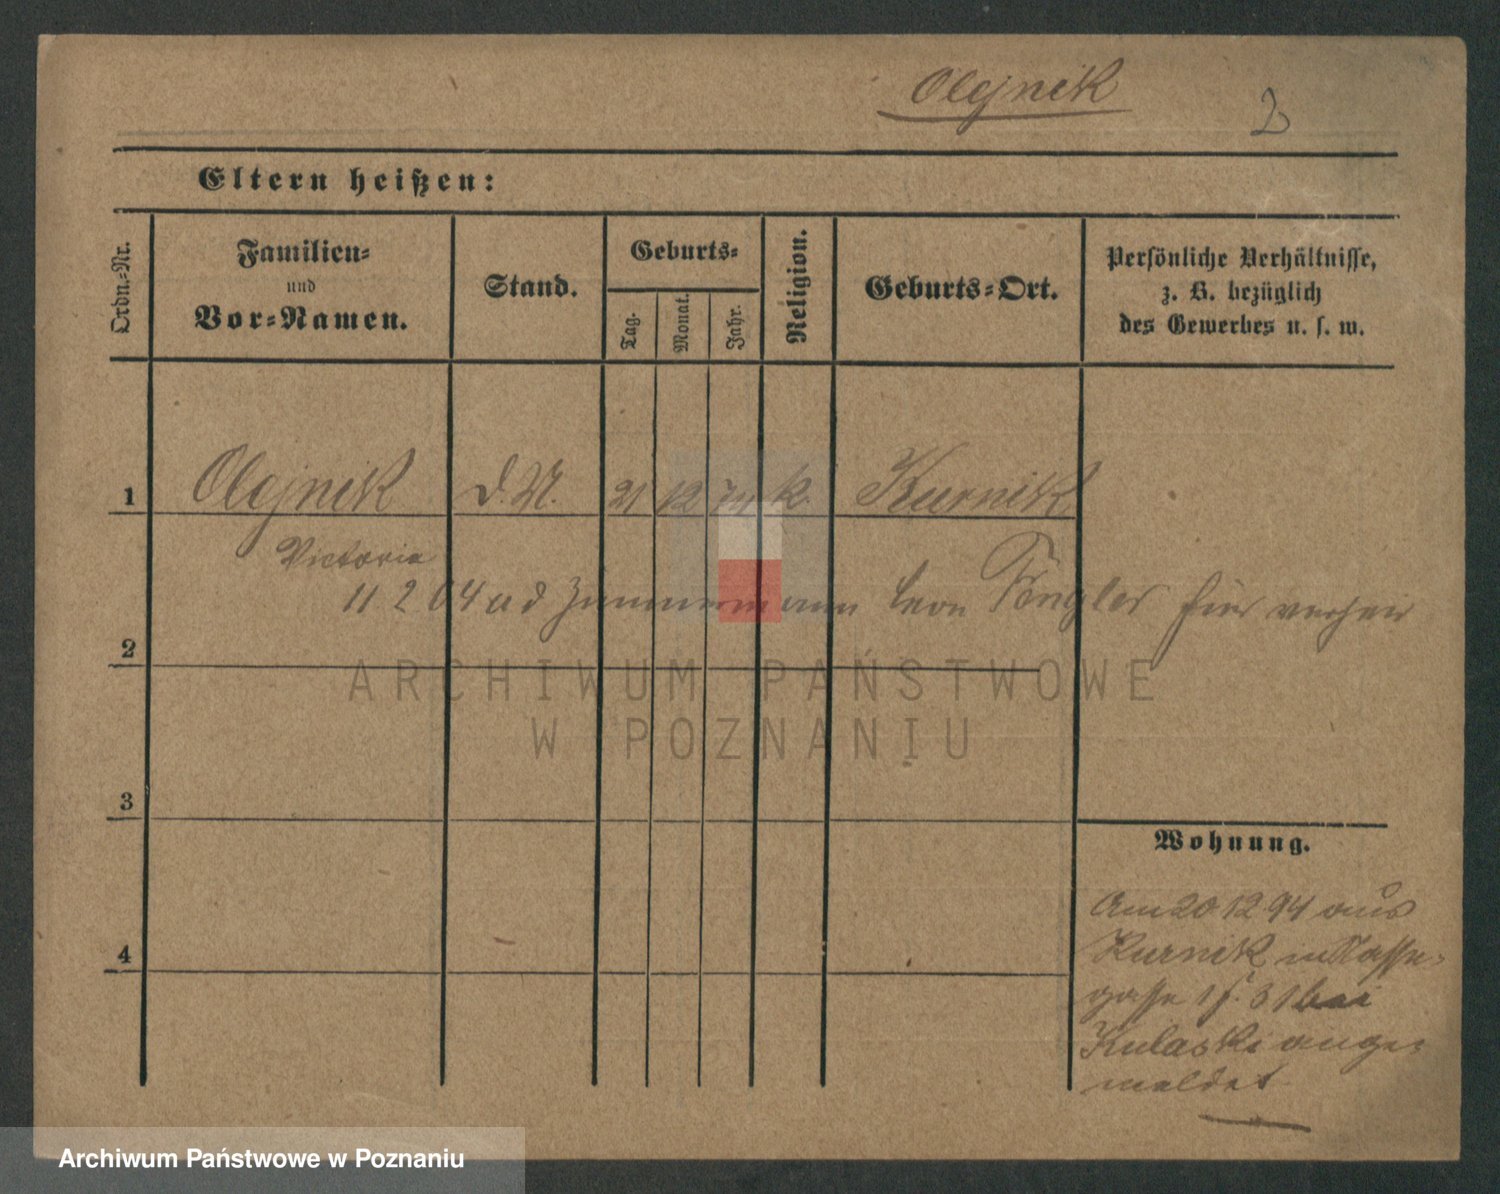 Olejnik
2
Eltern heißen:
Ordn.-Nr.
Familien-
und
Vor-Namen.
Stand.
Geburts-
Tag.
Monat.
Jahr.
Religion.
Geburts-Ort.
Persönliche Verhältnisse,
z. B. bezüglich
des Gewerbes u. s. w.
1 Olejnik d. M. 21 12 74 k. Kurnik
Victoria
11 2 04 a d Zimmermann Leon hier verheir
2
3
4
Wohnung.
Am 20 12 94 aus
Kurnik in Wasser-
gasse 1 bei
Kulaski ange-
meldet
ARCHIWUM PAŃSTWOWE
W POZNANIU
Archiwum Państwowe w Poznaniu